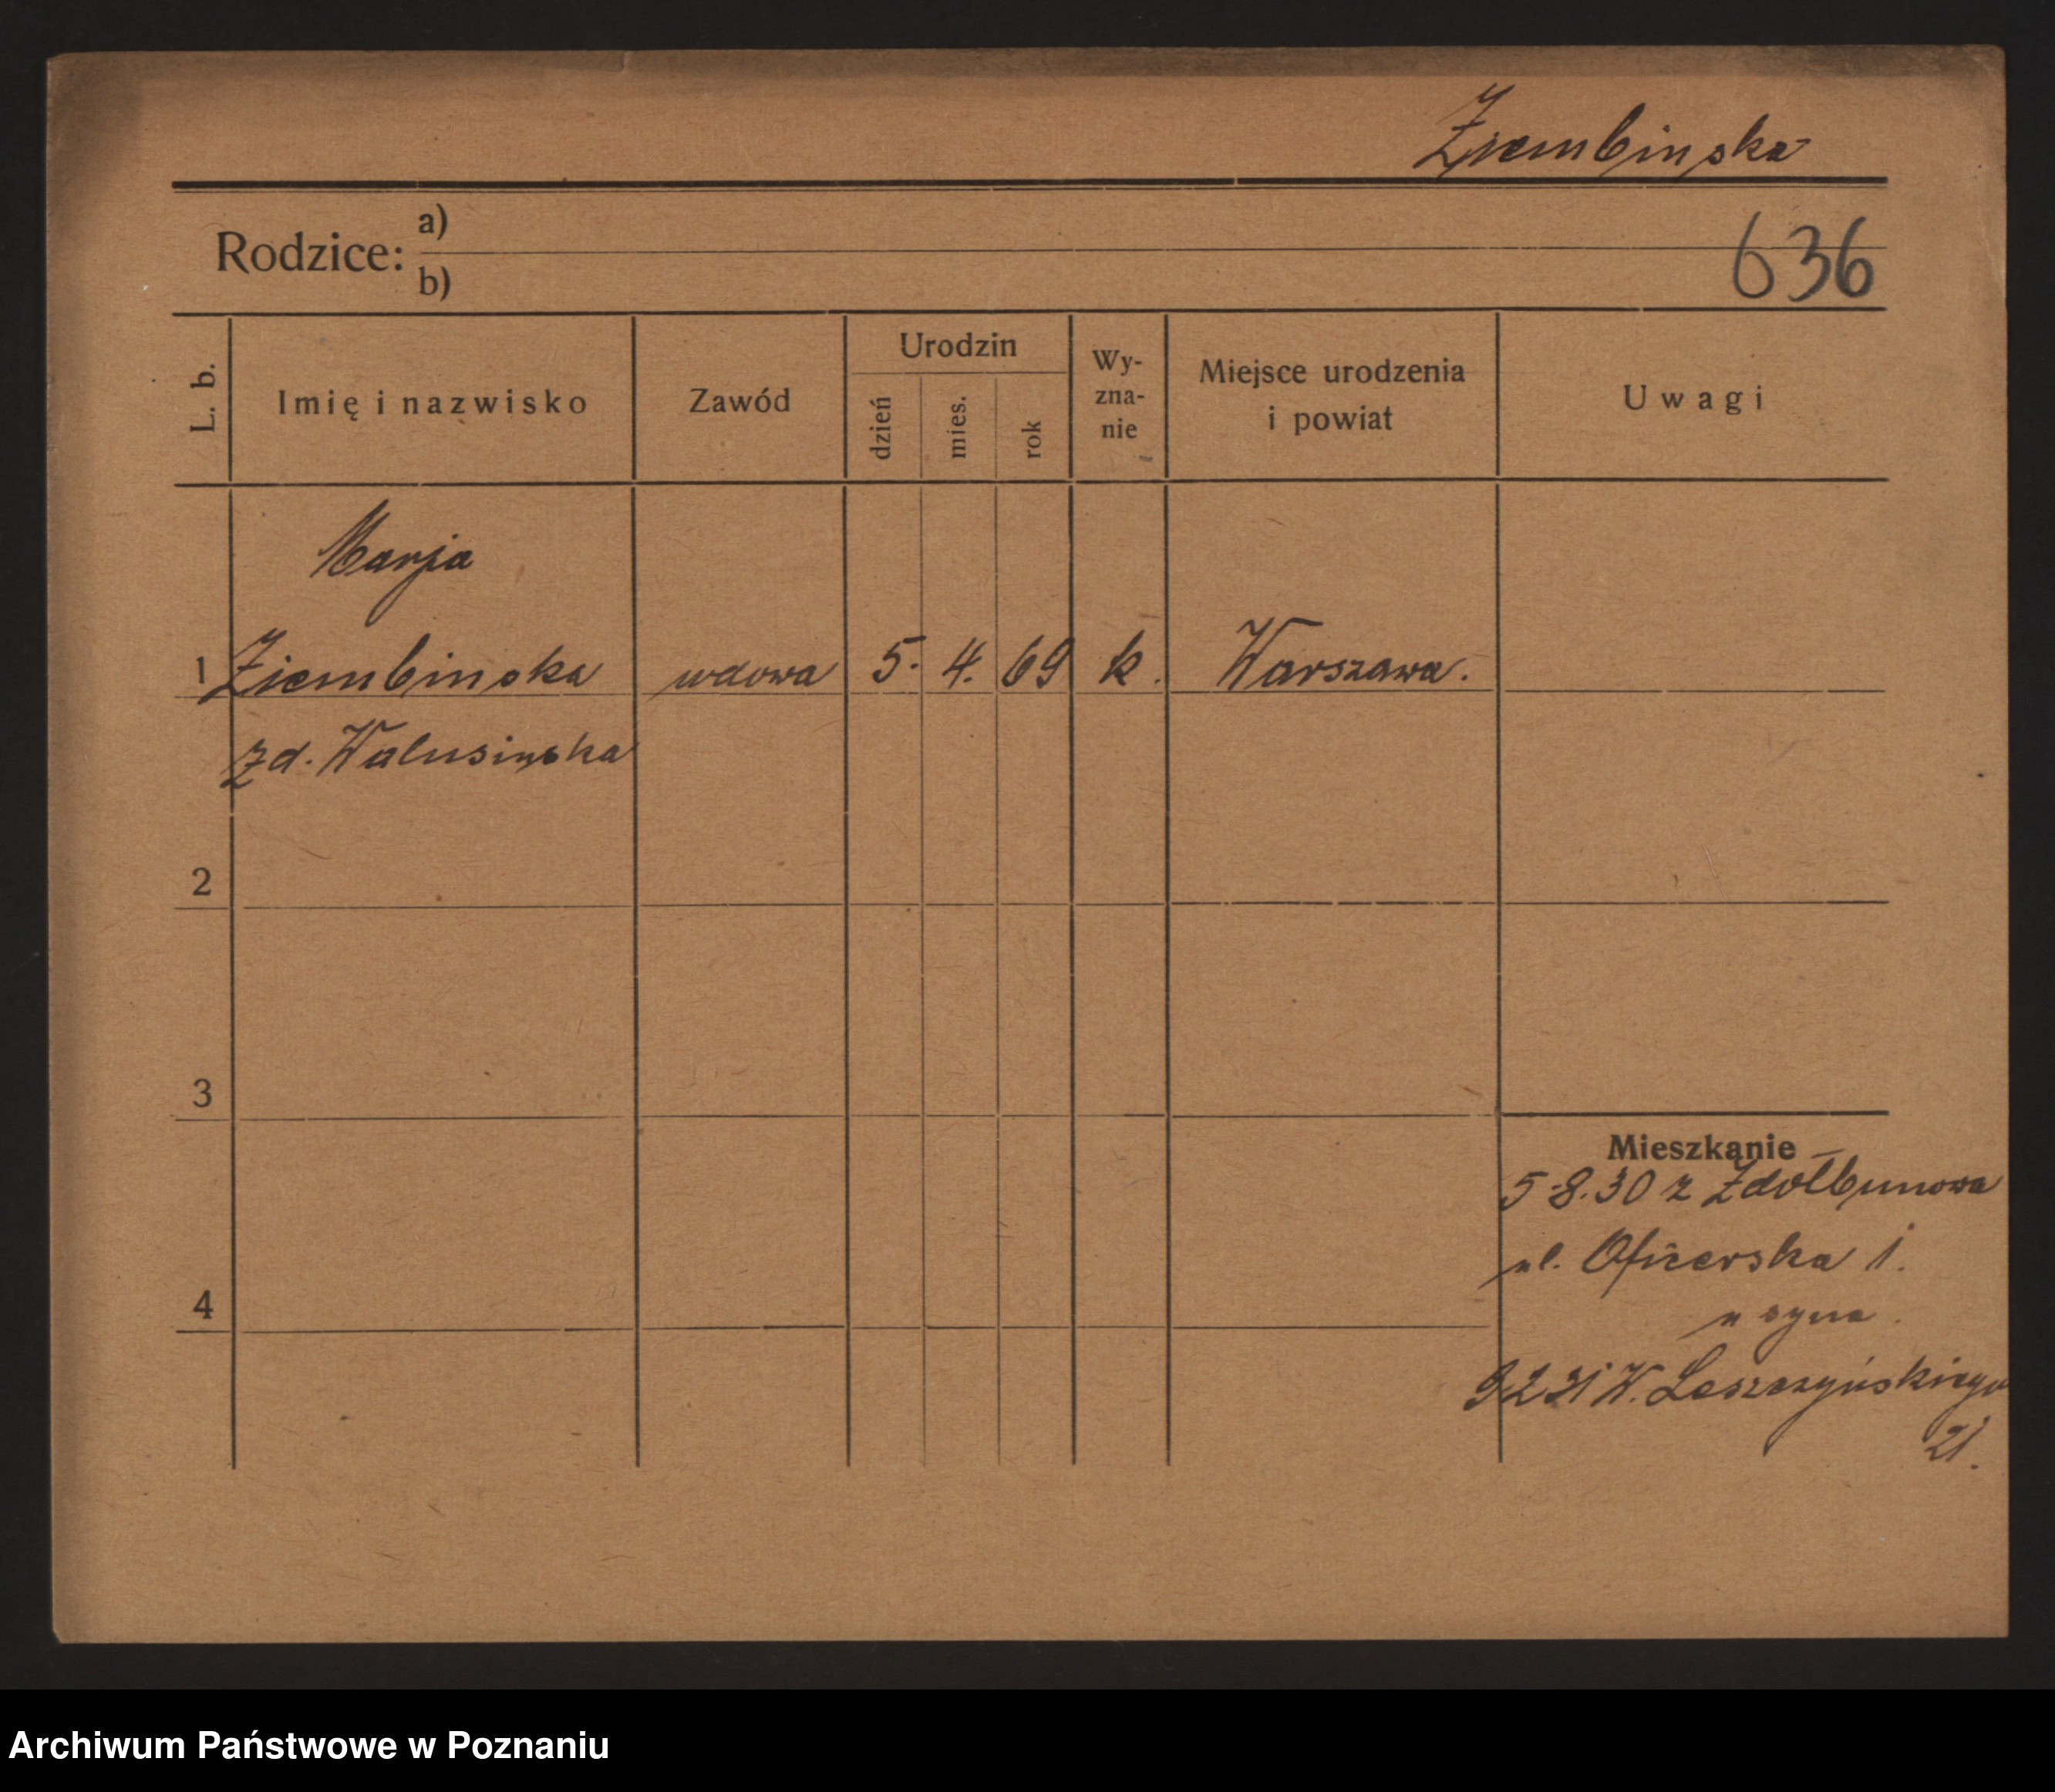 Ziembinska
Rodzice: a)
b)
636
L. b.
Imię i nazwisko
Zawód
Urodzin
dzień
mies.
rok
Wy-
zna-
nie
Miejsce urodzenia
i powiat
Uwagi
Marja
1 Ziembinska wdowa 5. 4. 69 k. Warszawa.
zd. Walusinska
2
3
Mieszkanie
5.8.30 z Zdołbunowa
ul. Oficerska 1.
u syna.
4
9 2 31 W. Leszczyńskiego
21.
Archiwum Państwowe w Poznaniu